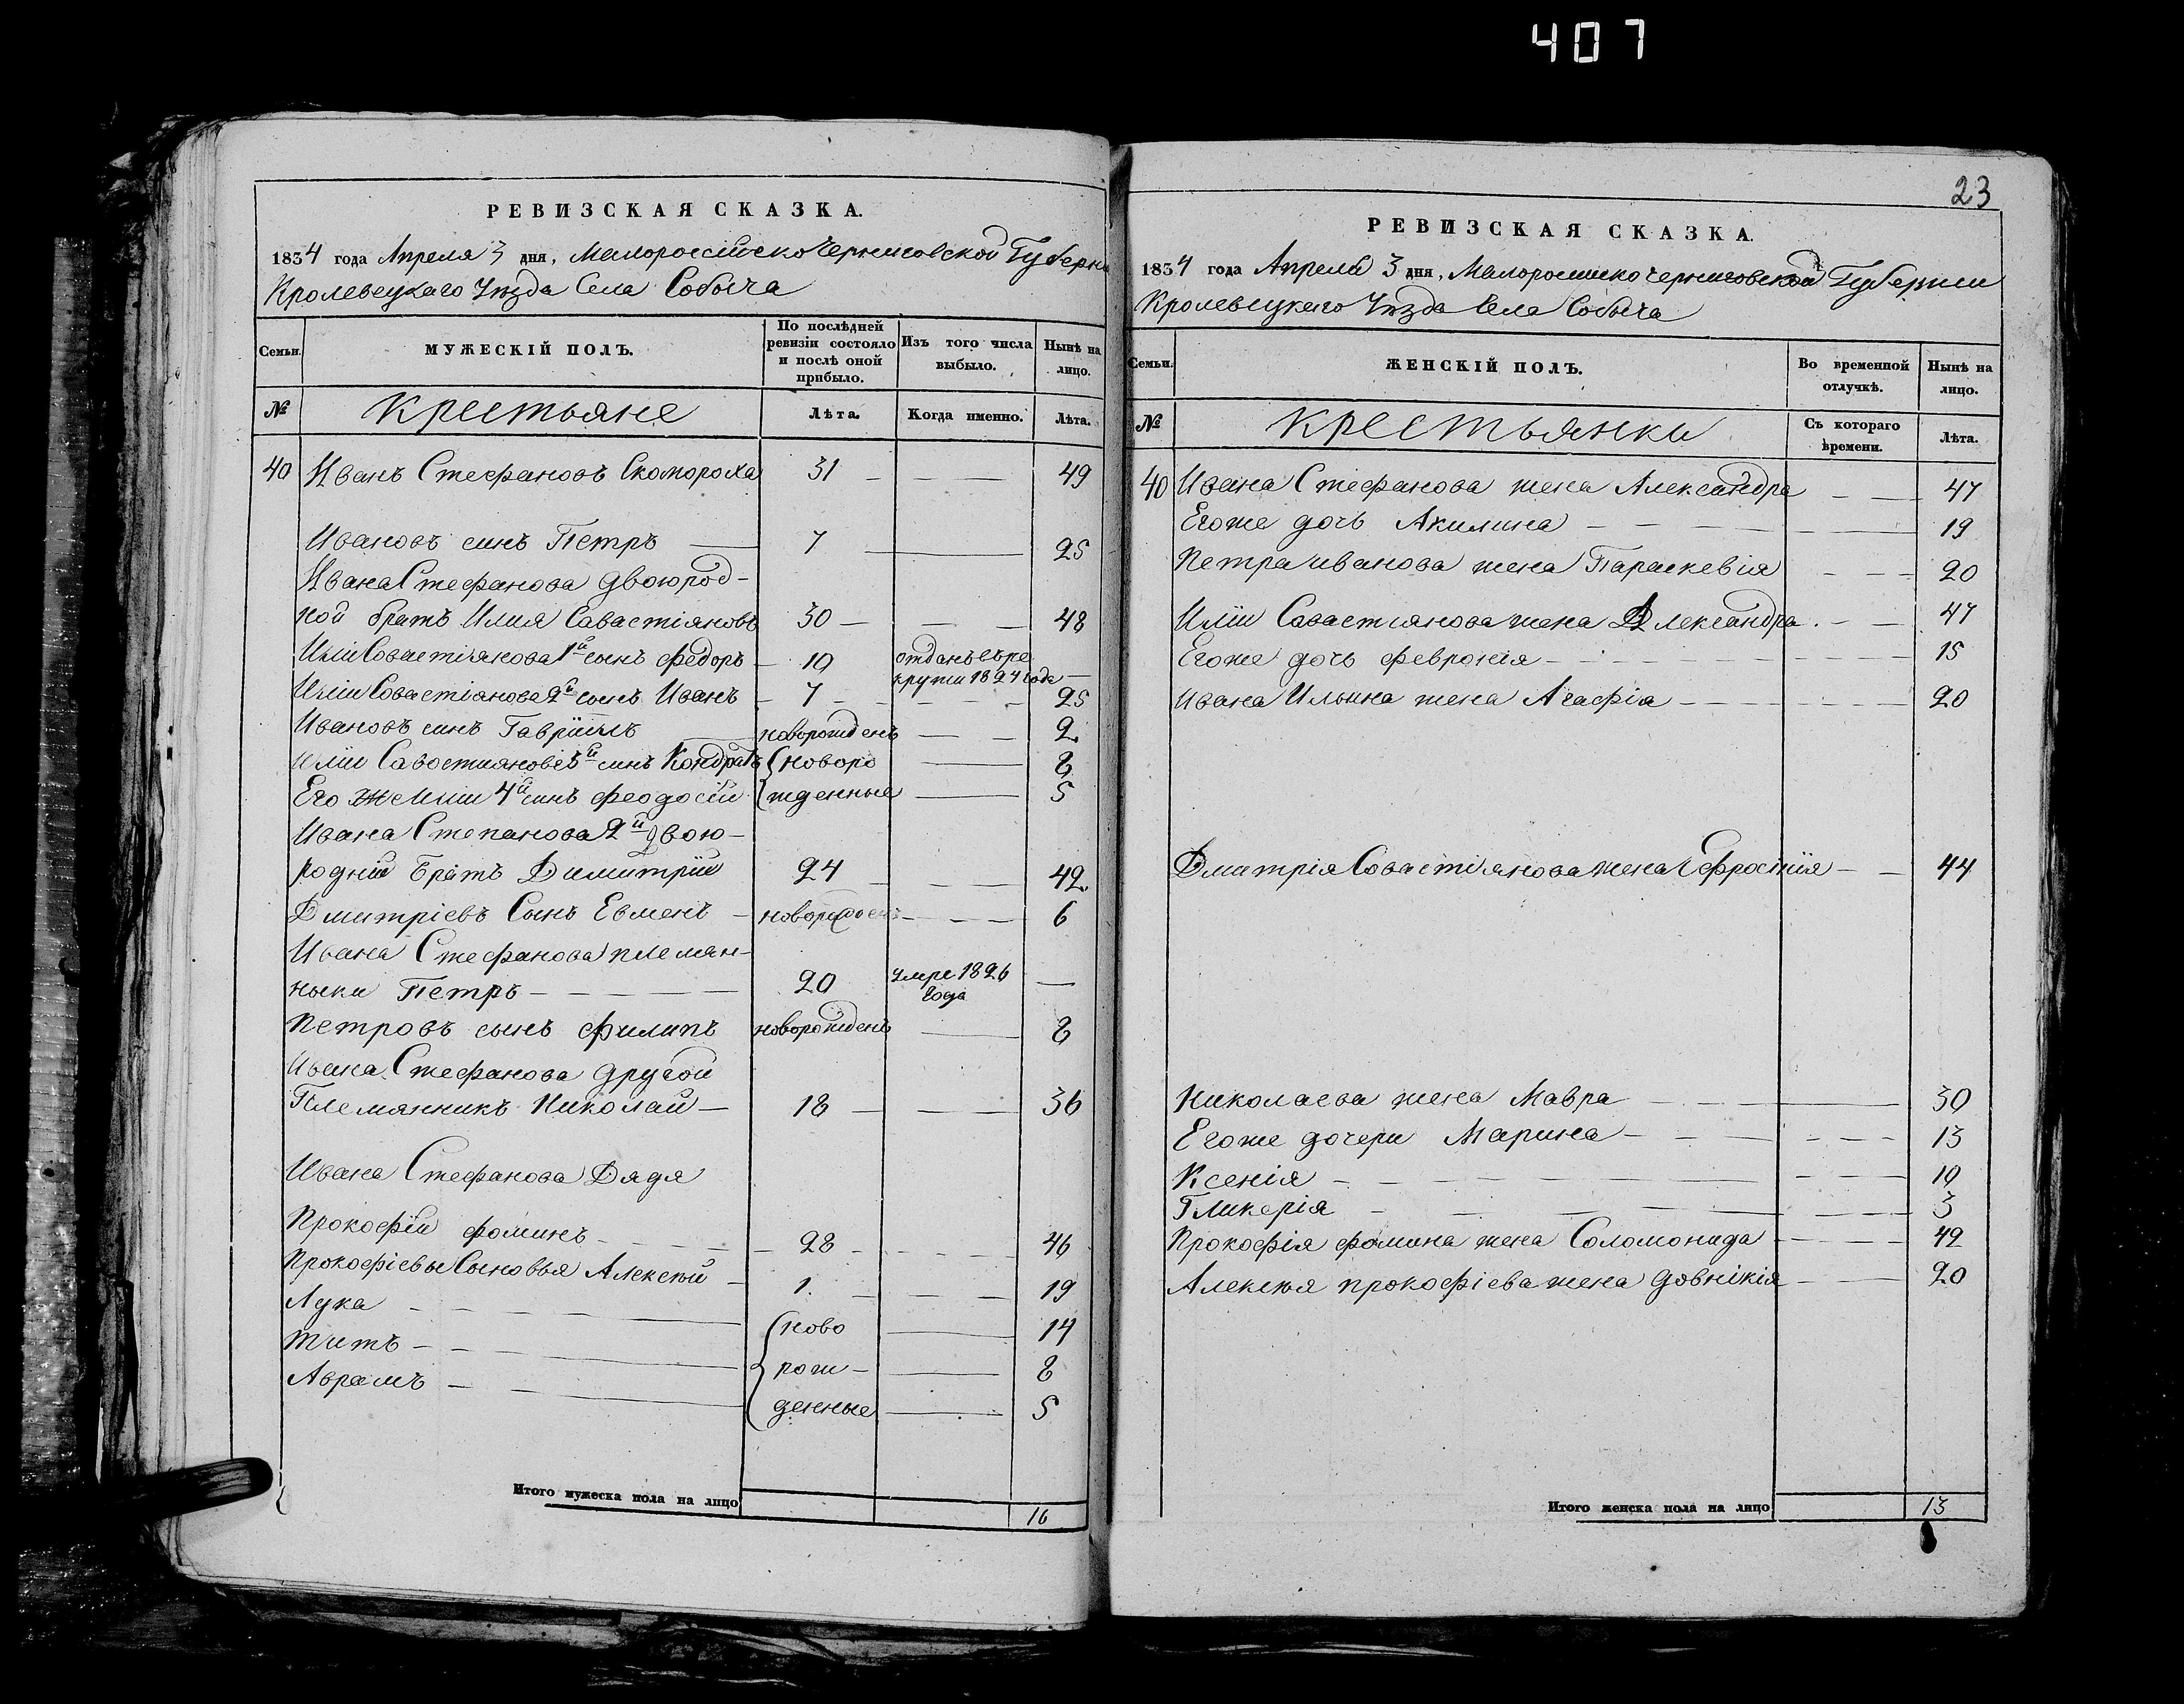 407
РЕВИЗСКАЯ СКАЗКА.
1834 года Апреля 3 дня, Малороссійско Черниговской Губерн
Кролевецкаго Уѣзда Села Собыча
Семьи. МУЖЕСКІЙ ПОЛЪ. По послѣдней ревизіи состояло и послѣ оной прибыло. Изъ того числа выбыло. Нынѣ на лицо.
№ Крестьяне Лѣта. Когда именно. Лѣта.
40 Иванъ Стефановъ Скомороха 31 — — 49
Ивановъ синъ Петръ — 7 — 25
Ивана Стефанова двоюрод-
ной братъ Илия Савастіяновъ 30 — — — 48
Иліи Савастіянова 1й сынъ Федоръ — 10 отданъ въ ре
крути 1824 года —
Иліи Савастіянова 2й сынъ Иванъ — 7 — — — 25
Ивановъ синъ Гавріилъ новорожденъ — — 2
Иліи Савостиянова 3й синъ Кондратъ новоро — 8
Его же Иліи 4й синъ Феодосій жденные — 5
Ивана Степанова 2й двою-
родній Братъ Димитрій 24 — — — 42
Дмитріевъ Сынъ Евменъ — новорожден — — — 6
Ивана Стефанова племян-
ныки Петръ — — — 20 умре 1826 —
года
Петровъ сынъ Филипъ новорожденъ — 8
Ивана Стефанова другой
Племянникъ Николай — 18 — — — 36
Ивана Стефанова Дядя
Прокофій Фоминъ — — — 28 — — — 46
Прокофіевы Сыновья Алексѣй — 1. — — — 19
Лука — — — ново — 14
Титъ — — — рож- — 8
Аврамъ — — — денные — 5
Итого мужеска пола на лицо 16
23
РЕВИЗСКАЯ СКАЗКА.
1834 года Апреля 3 дня, Малоросийско Черниговской Губернии
Кролевецкаго Уѣзда Села Собыча
Семьи. ЖЕНСКІЙ ПОЛЪ. Во временной отлучкѣ. Нынѣ на лицо.
№ Крестьянки Съ котораго времени. Лѣта.
40 Ивана Стефанова жена Александра — — 47
Его же дочъ Акилина — — — 19
Петра иванова жена Параскевія — — — 20
Иліи Савастиянова жена Александра — — 47
Его же дочъ Февронія — — — 15
Ивана Ильина жена Агафія — — — 20
Дмитрія Савастіянова жена Ефросинія — — 44
Николаева жена Мавра — — — 30
Его же дочери Марина — — — 13
Ксенія — — — 10
Гликерія — — — 3
Прокофія Фомина жена Соломонида — — — 42
Алексѣя прокофіева жена Довнікія — — 20
Итого женска пола на лицо 13